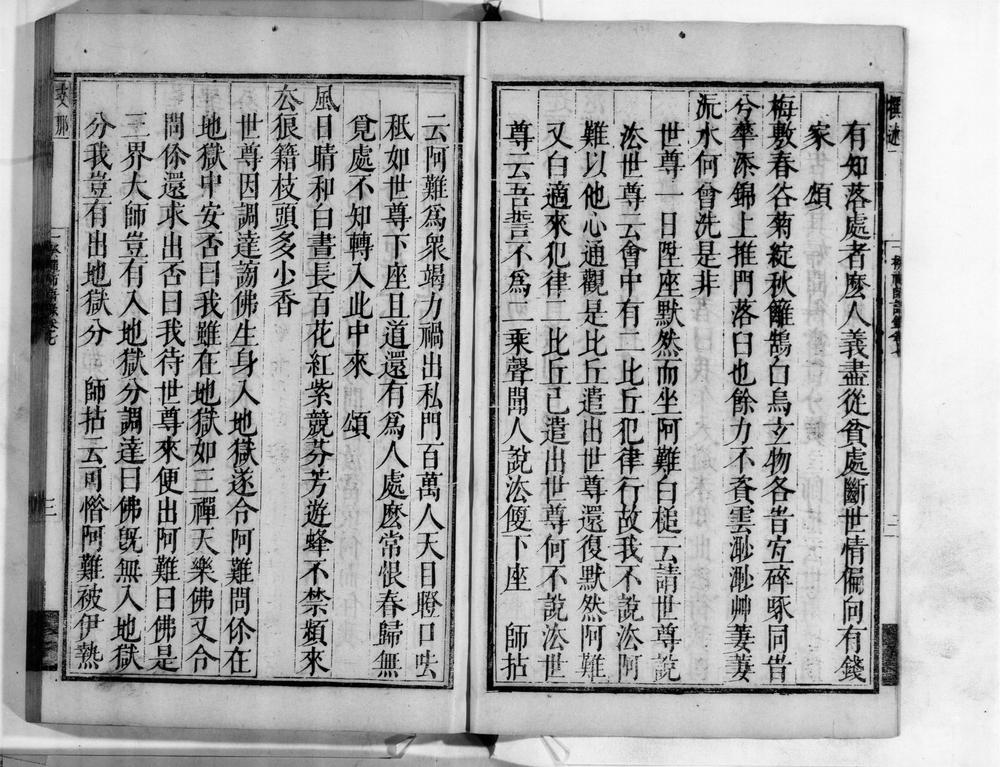 有知落處者麼人義盡從貧處斷世情偏向有錢
家　頌
梅敷春谷菊綻秋籬鵠白烏玄物各皆宜碎啄同皆
兮華添錦上推門落臼也餘力不資雲渺渺艸萋萋
沅水何曾洗是非
世尊一日陞座默然而坐阿難白槌云請世尊說
法世尊云會中有二比丘犯律行故我不說法阿
難以他心通觀是比丘遣出世尊還復默然阿難
又白適來犯律二比丘已遣出世尊何不說法世
尊云吾誓不為二乘聲聞人說法便下座　師拈
云阿難為眾竭力禍出私門百萬人天目瞪口呿
秖如世尊下座且道還有為人處麼常恨春歸無
覓處不知轉入此中來　頌
風日晴和白晝長百花紅紫競芬芳遊蜂不禁頻來
去狼籍枝頭多少香
世尊因調達謗佛生身入地獄遂令阿難問你在
地獄中安否曰我雖在地獄如三禪天樂佛又令
問你還求出否曰我待世尊來便出阿難曰佛是
三界大師豈有入地獄分調達曰佛既無入地獄
分我豈有出地獄分　師拈云可惜阿難被伊熱
支那
三